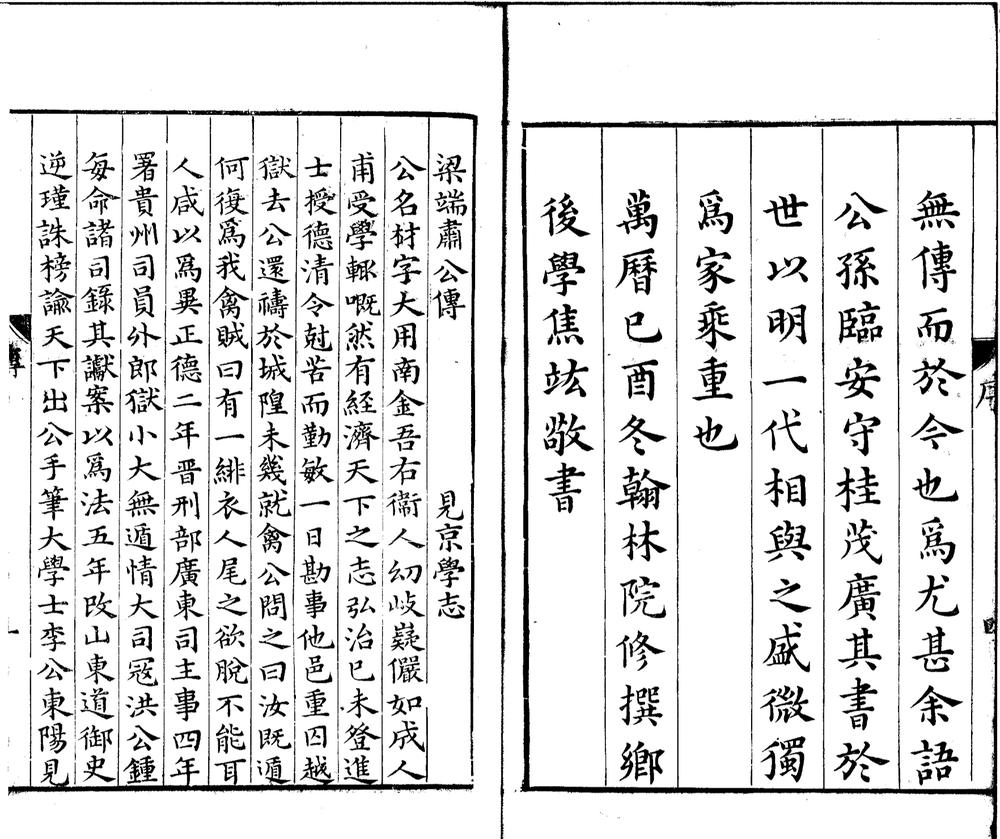 無傳而於今也爲尤甚余語
公孫臨安守桂茂廣其書於
世以明一代相與之盛微獨
爲家乘重也
萬曆己酉冬翰林院修撰鄉
後學焦竑敬書
序
梁端肅公傳 見京學志
公名材字大用南金吾右衞人幼岐嶷儼如成人
甫受學輒嘅然有經濟天下之志弘治己未登進
士授德清令尅苦而勤敏一日勘事他邑重囚越
獄去公還禱於城隍未幾就禽公問之曰汝既遁
何復爲我禽賊曰有一緋衣人尾之欲脫不能耳
人咸以爲異正德二年晉刑部廣東司主事四年
署貴州司員外郎獄小大無遁情大司寇洪公鍾
每命諸司錄其讞案以爲法五年改山東道御史
逆瑾誅榜諭天下出公手筆大學士李公東陽見
傳
一